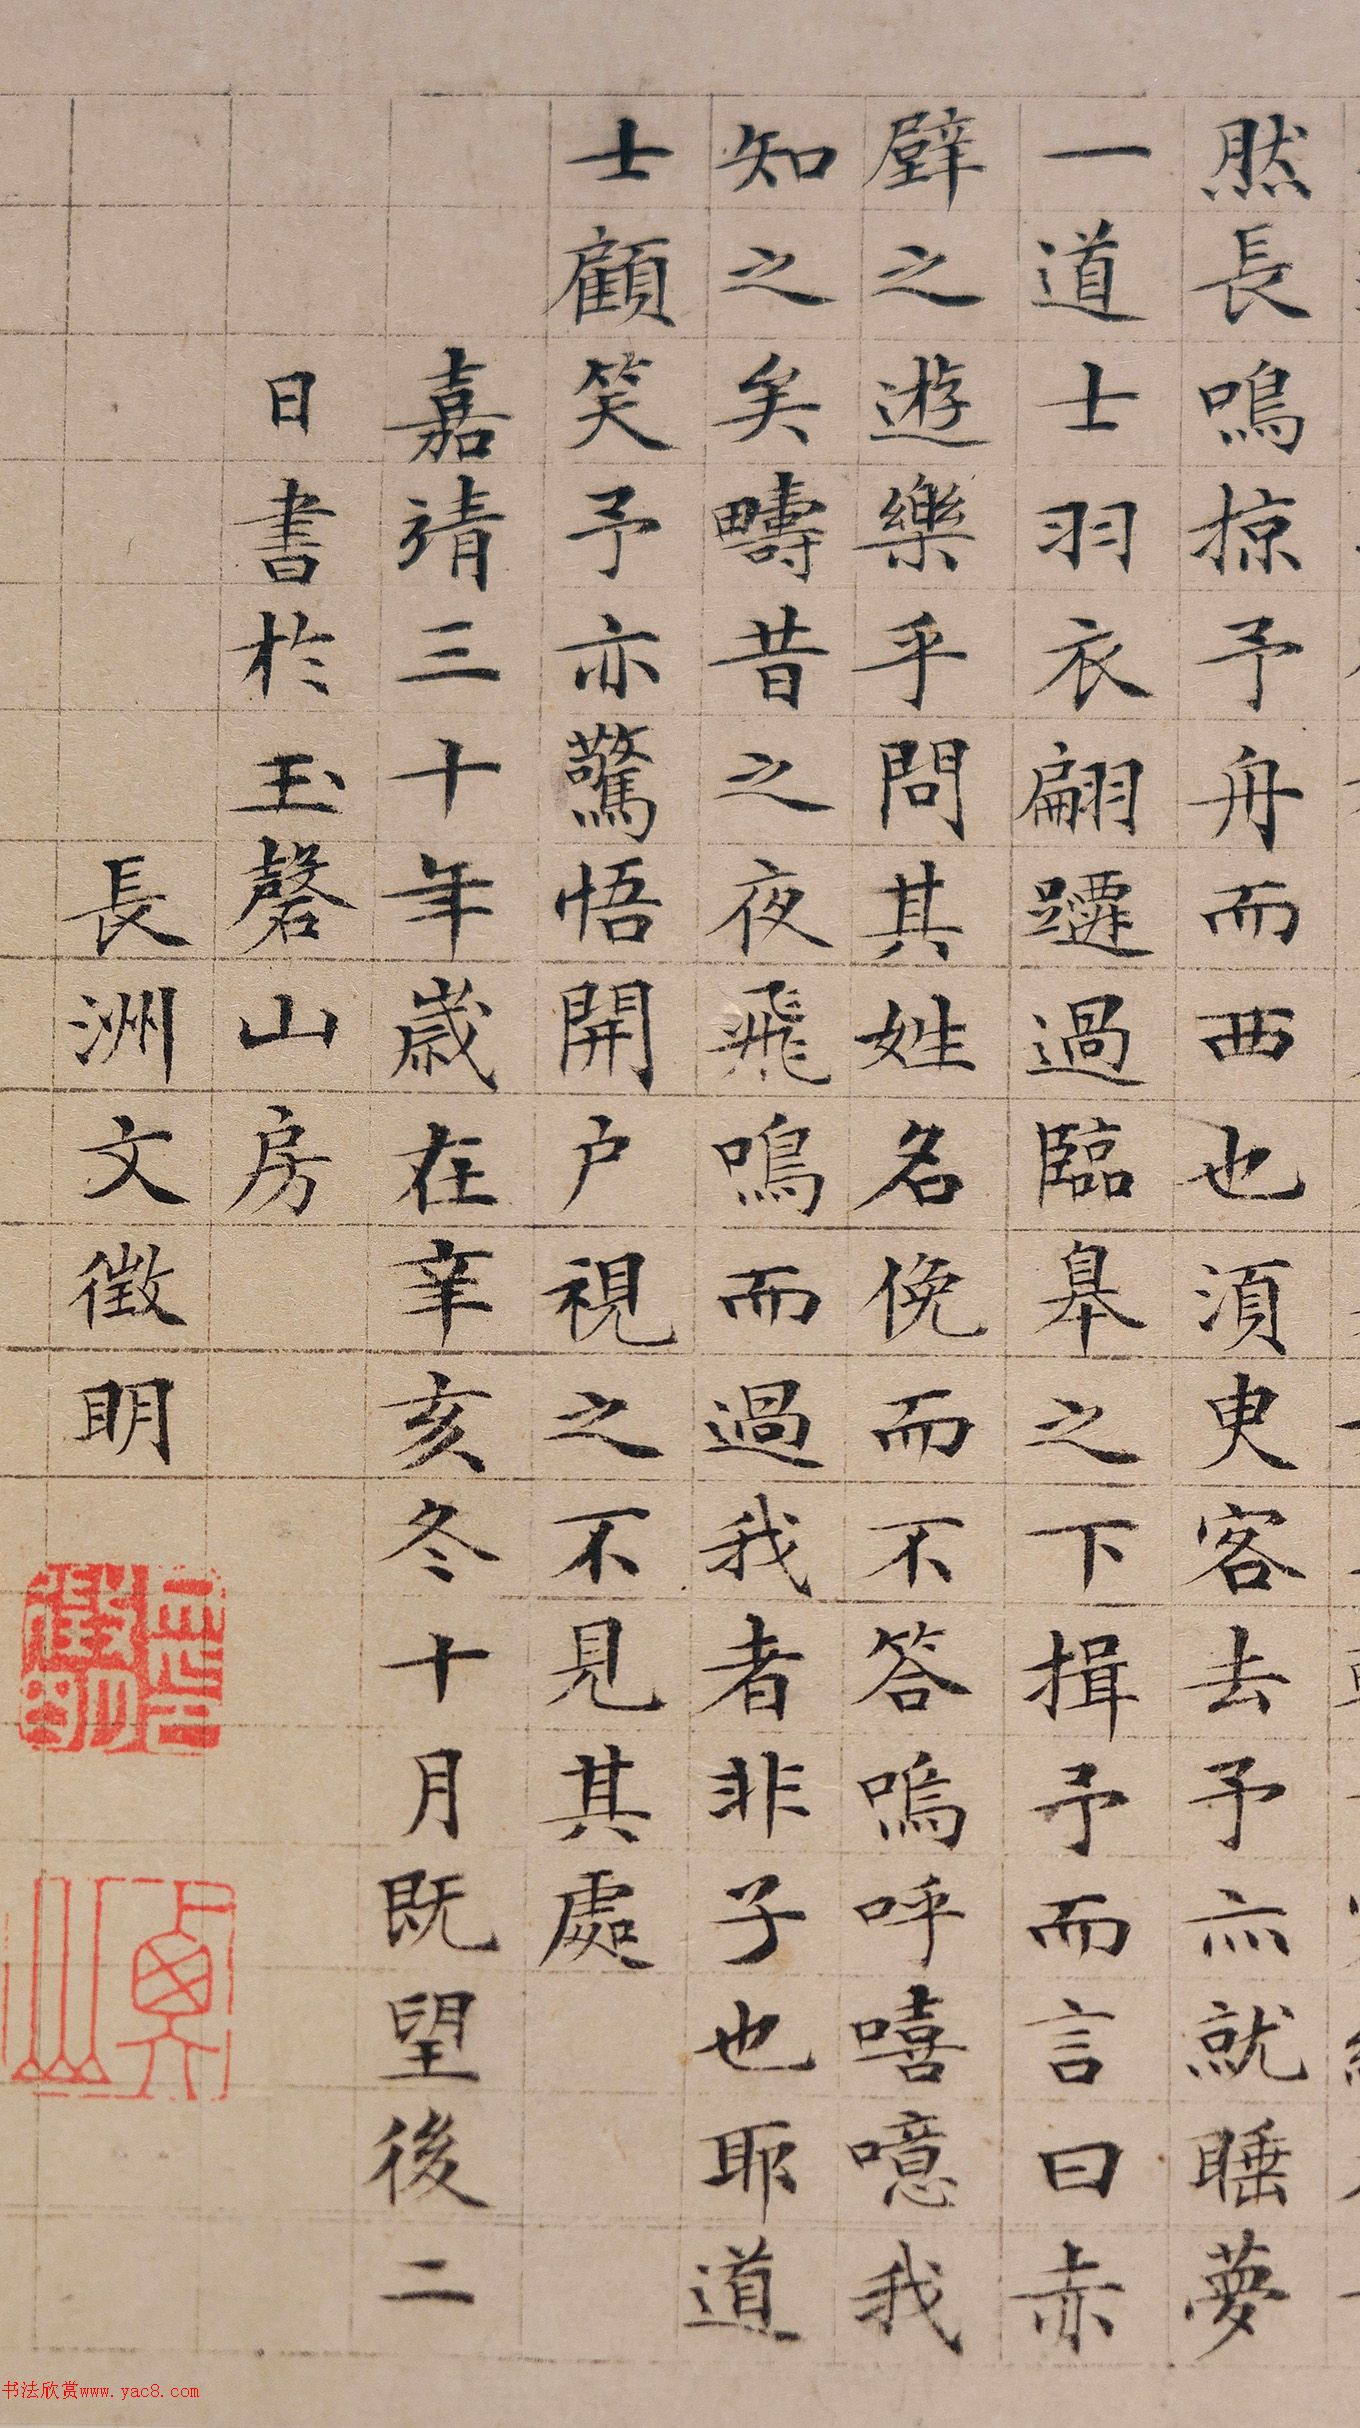 然長鳴掠予舟而西也須臾客去予亦就睡夢
一道士羽衣翩躚過臨皋之下揖予而言曰赤
壁之遊樂乎問其姓名俛而不答嗚呼噫嘻我
知之矣疇昔之夜飛鳴而過我者非子也耶道
士顧笑予亦驚悟開户視之不見其處
嘉靖三十年歲在辛亥冬十月既望後二
日書於玉磬山房
長洲文徵明
书法欣赏www.yac8.com